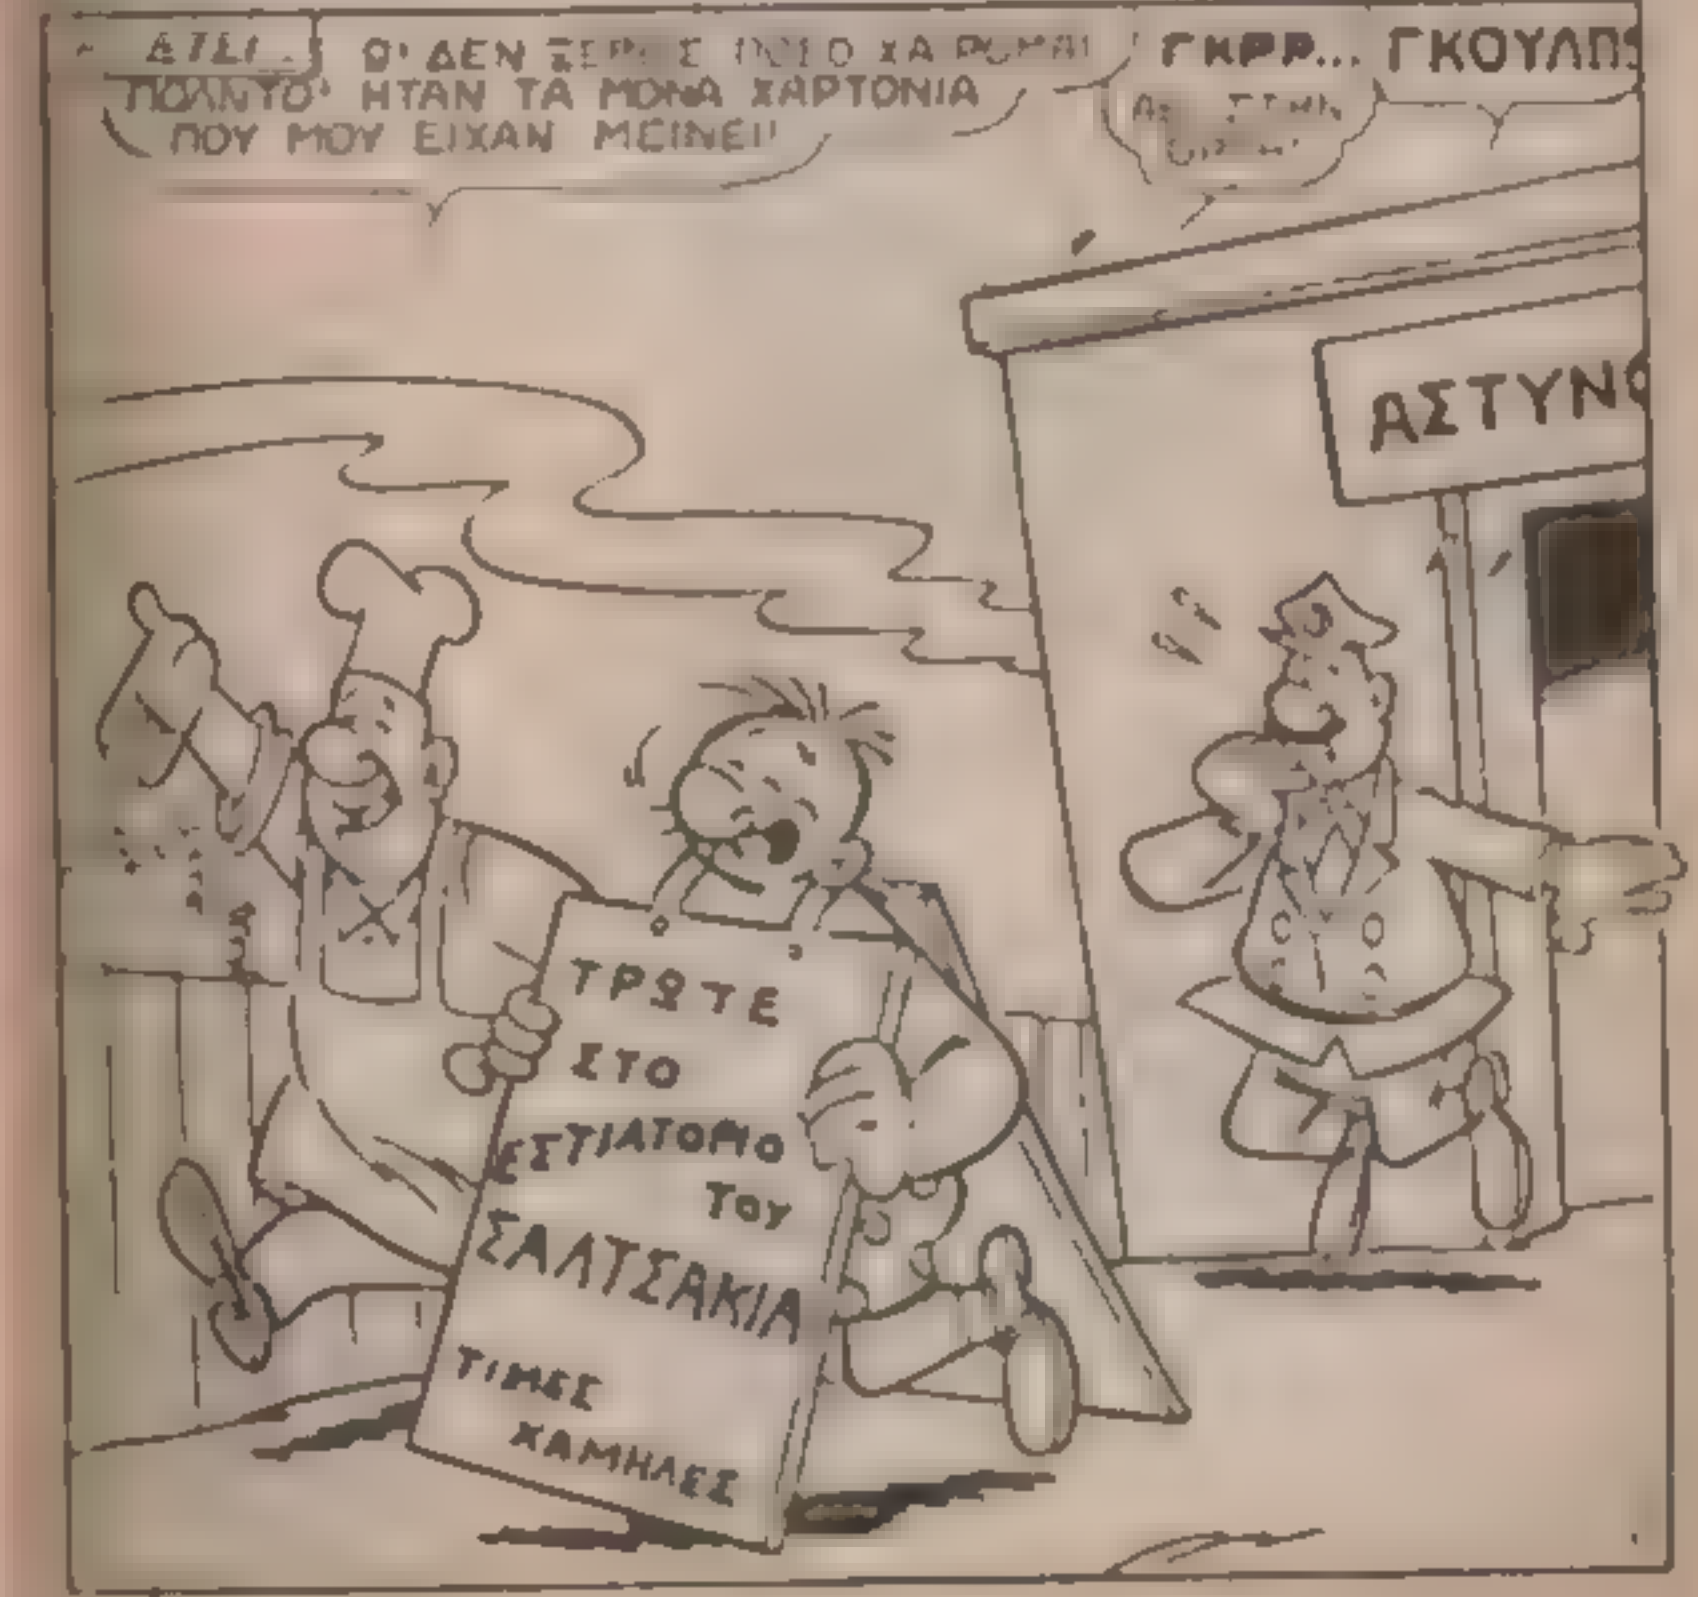 ΕΤΣΙ...
Ω! ΔΕΝ ΞΕΡΕΙΣ ΠΟΣΟ ΧΑΙΡΟΜΑΙ
ΠΟΛΝΤΟ! ΗΤΑΝ ΤΑ ΜΟΝΑ ΧΑΡΤΟΝΙΑ
ΠΟΥ ΜΟΥ ΕΙΧΑΝ ΜΕΙΝΕΙ!!
ΓΚΡΡ...
ΓΚΟΥΛΠΣ
ΑΣΤΥΝΟ
ΤΡΩΤΕ
ΣΤΟ
ΕΣΤΙΑΤΟΡΙΟ
ΤΟΥ
ΣΑΛΤΣΑΚΙΑ
ΤΙΜΕΣ
ΧΑΜΗΛΕΣ